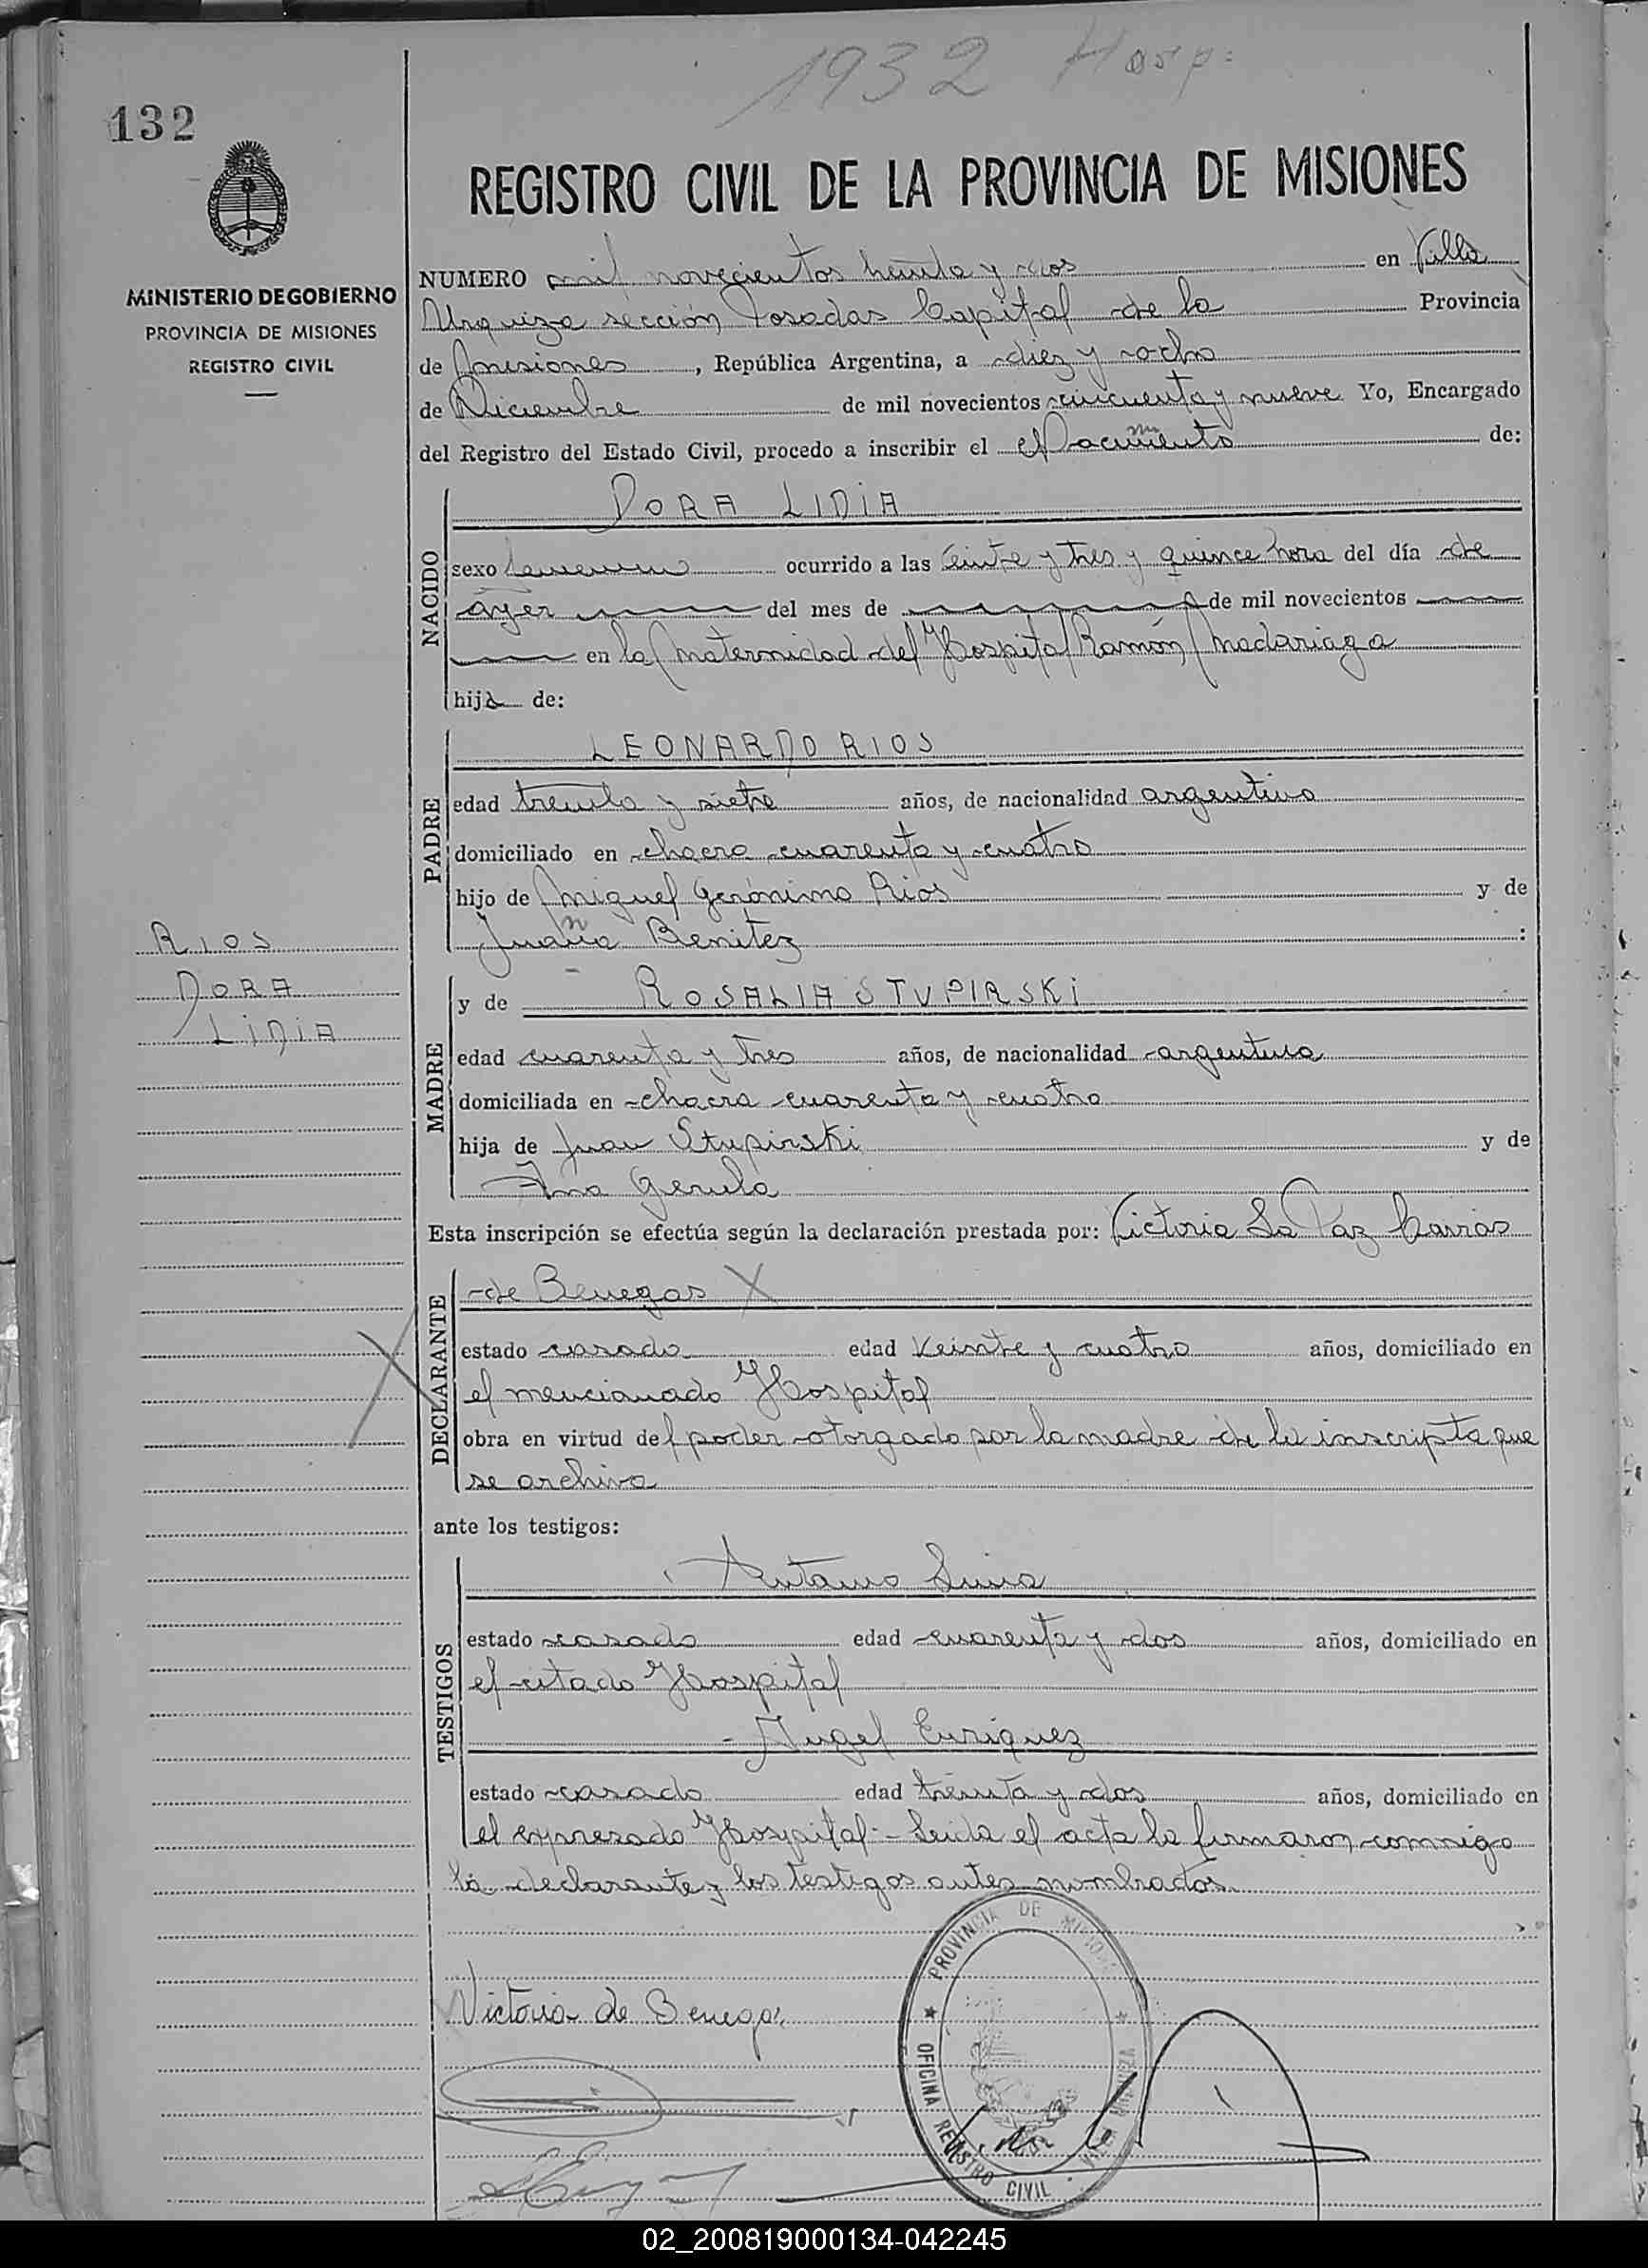 1932 Hosp:
132
REGISTRO CIVIL DE LA PROVINCIA DE MISIONES
MINISTERIO DE GOBIERNO
PROVINCIA DE MISIONES
REGISTRO CIVIL
NUMERO mil novecientos treinta y dos en Villa
Urquiza sección Posadas Capital de la Provincia
de Misiones, República Argentina, a diez y ocho
de Diciembre de mil novecientos cincuenta y nueve Yo, Encargado
del Registro del Estado Civil, procedo a inscribir el el Nacimiento de:
NACIDO
DORA LIDIA
sexo femenino ocurrido a las veinte y tres y quince hora del día de
ayer del mes de de mil novecientos
en la Maternidad del Hospital Ramón Madariaga
hija de:
PADRE
LEONARDO RIOS
edad treinta y siete años, de nacionalidad argentina
domiciliado en chacra cuarenta y cuatro
hijo de Miguel Gerónimo Rios y de
Juana Benitez :
RIOS
DORA
LIDIA
MADRE
y de ROSALIA STUPIRSKI
edad cuarenta y tres años, de nacionalidad argentina
domiciliada en chacra cuarenta y cuatro
hija de Juan Stupirski y de
Ana Gerula
Esta inscripción se efectúa según la declaración prestada por: Victoria La Paz Barrios
DECLARANTE
de Benegas X
estado casado edad veinte y cuatro años, domiciliado en
el mencionado Hospital
obra en virtud del poder otorgado por la madre de la inscripta que
se archiva
ante los testigos:
TESTIGOS
Antonio Luna
estado casado edad cuarenta y dos años, domiciliado en
el citado Hospital
Angel Enriquez
estado casado edad treinta y dos años, domiciliado en
el expresado Hospital - Leida el acta la firmaron conmigo
la declarante y los testigos antes nombrados.
PROVINCIA DE MISIONES
OFICINA REGISTRO CIVIL VILLA URQUIZA
Victoria de Benegas
02_200819000134-042245